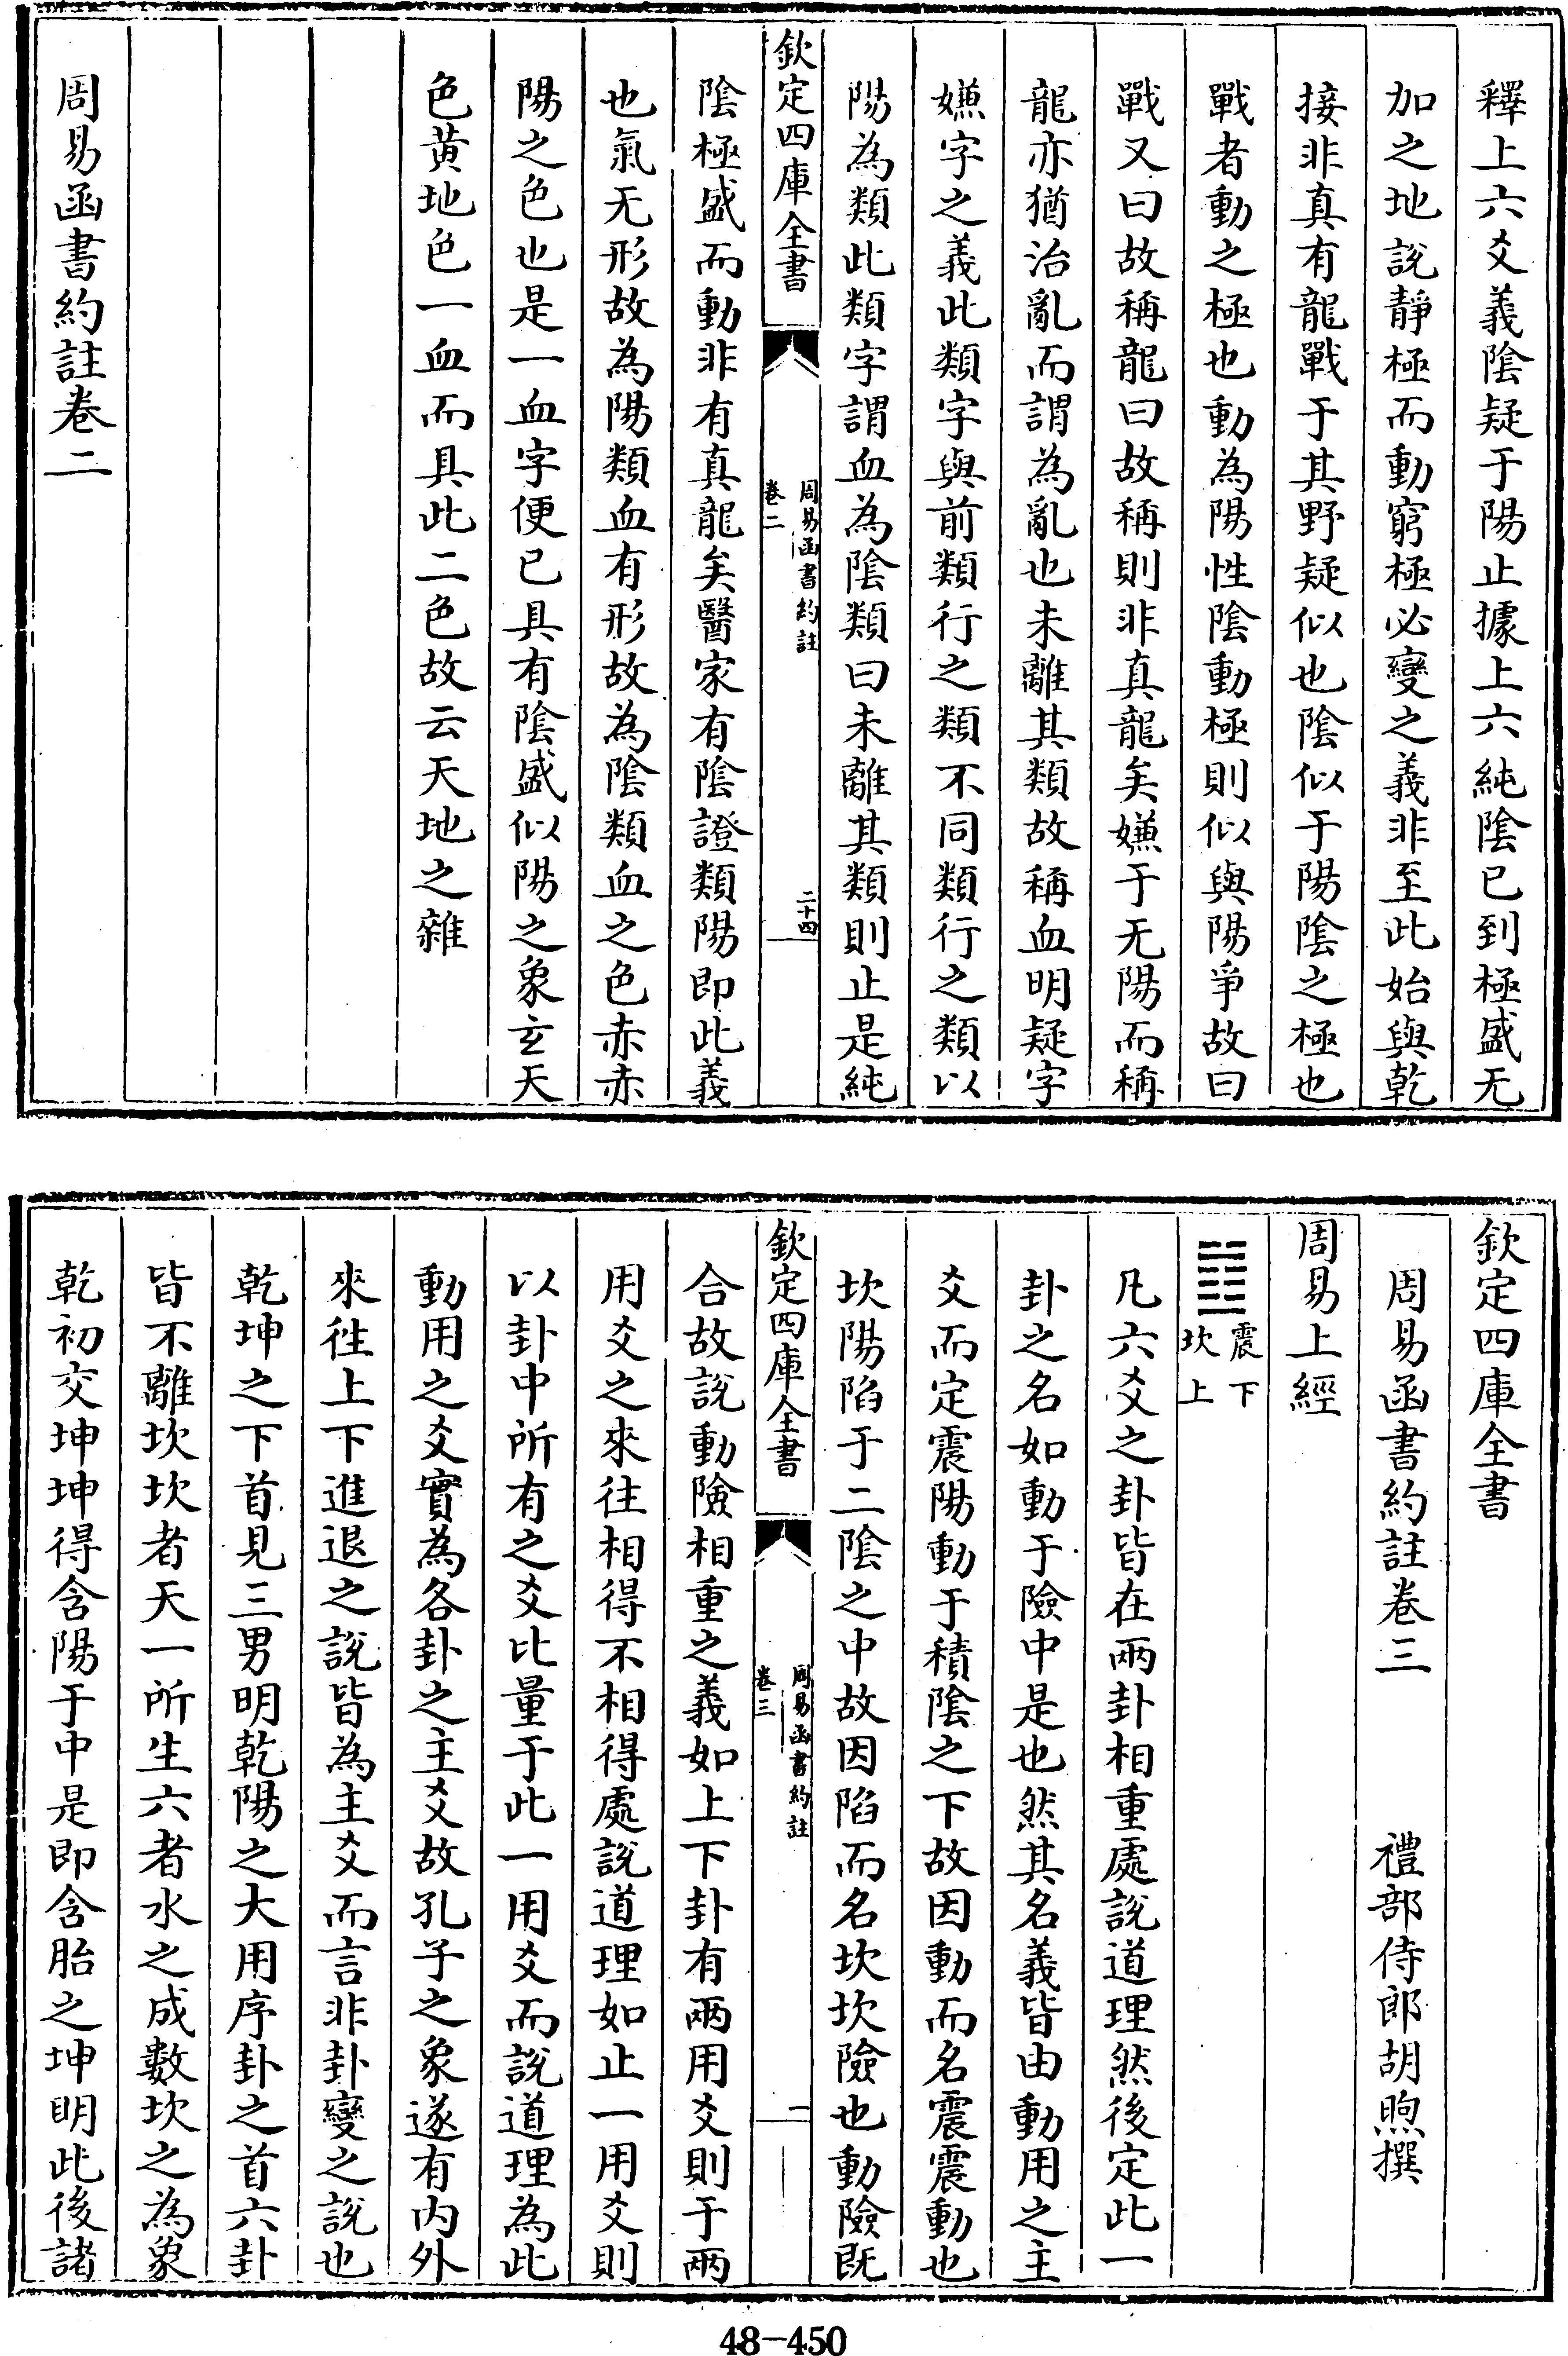 釋上六爻義陰疑于陽止據上六純陰已到極盛无
加之地說靜極而動窮極必變之義非至此始與乾
接非真有龍戰于其野疑似也陰似于陽陰之極也
戰者動之極也動為陽性陰動極則似與陽爭故曰
戰又曰故稱龍曰故稱則非真龍矣嫌于无陽而稱
龍亦猶治亂而謂為亂也未離其類故稱血明疑字
嫌字之義此類字與前類行之類不同類行之類以
陽為類此類字謂血為陰類曰未離其類則止是純
欽定四庫全書
周易函書約註
卷二
二十四
陰極盛而動非有真龍矣醫家有陰證類陽即此義
也氣无形故為陽類血有形故為陰類血之色赤赤
陽之色也是一血字便已具有陰盛似陽之象玄天
色黃地色一血而具此二色故云天地之雜
周易函書約註卷二
欽定四庫全書
周易函書約註卷三 禮部侍郎胡煦撰
周易上經
䷂ 震下
坎上
凡六爻之卦皆在兩卦相重處說道理然後定此一
卦之名如動于險中是也然其名義皆由動用之主
爻而定震陽動于積陰之下故因動而名震震動也
坎陽陷于二陰之中故因陷而名坎坎險也動險既
欽定四庫全書
周易函書約註
卷三
一
合故說動險相重之義如上下卦有兩用爻則于兩
用爻之來往相得不相得處說道理如止一用爻則
以卦中所有之爻比量于此一用爻而說道理為此
動用之爻實為各卦之主爻故孔子之彖遂有內外
來往上下進退之說皆為主爻而言非卦變之說也
乾坤之下首見三男明乾陽之大用序卦之首六卦
皆不離坎坎者天一所生六者水之成數坎之為象
乾初交坤坤得含陽于中是即含胎之坤明此後諸
48-450